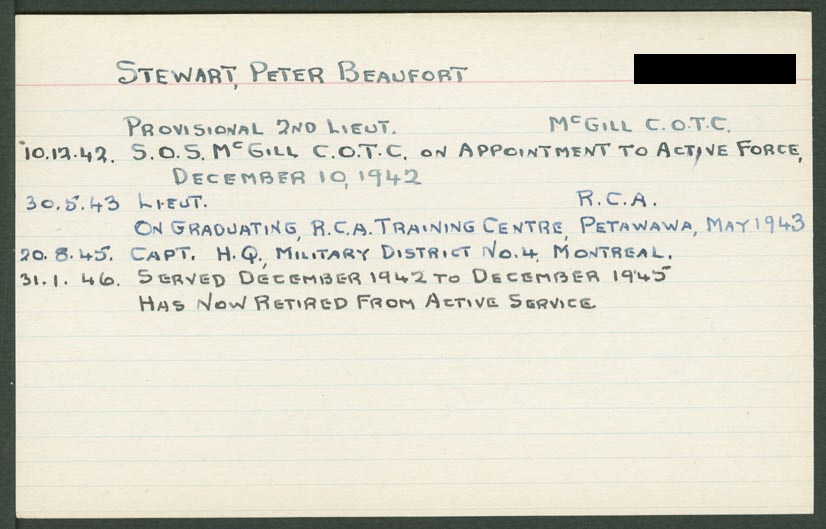 STEWART, PETER BEAUFORT
PROVISIONAL 2ND LIEUT. McGILL C.O.T.C.
10.12.42. S.O.S. McGILL C.O.T.C. ON APPOINTMENT TO ACTIVE FORCE,
DECEMBER 10, 1942
30.5.43 LIEUT. R.C.A.
ON GRADUATING, R.C.A. TRAINING CENTRE, PETAWAWA, MAY 1943
20.8.45. CAPT. H.Q., MILITARY DISTRICT NO.4, MONTREAL.
31.1.46. SERVED DECEMBER 1942 TO DECEMBER 1945
HAS NOW RETIRED FROM ACTIVE SERVICE